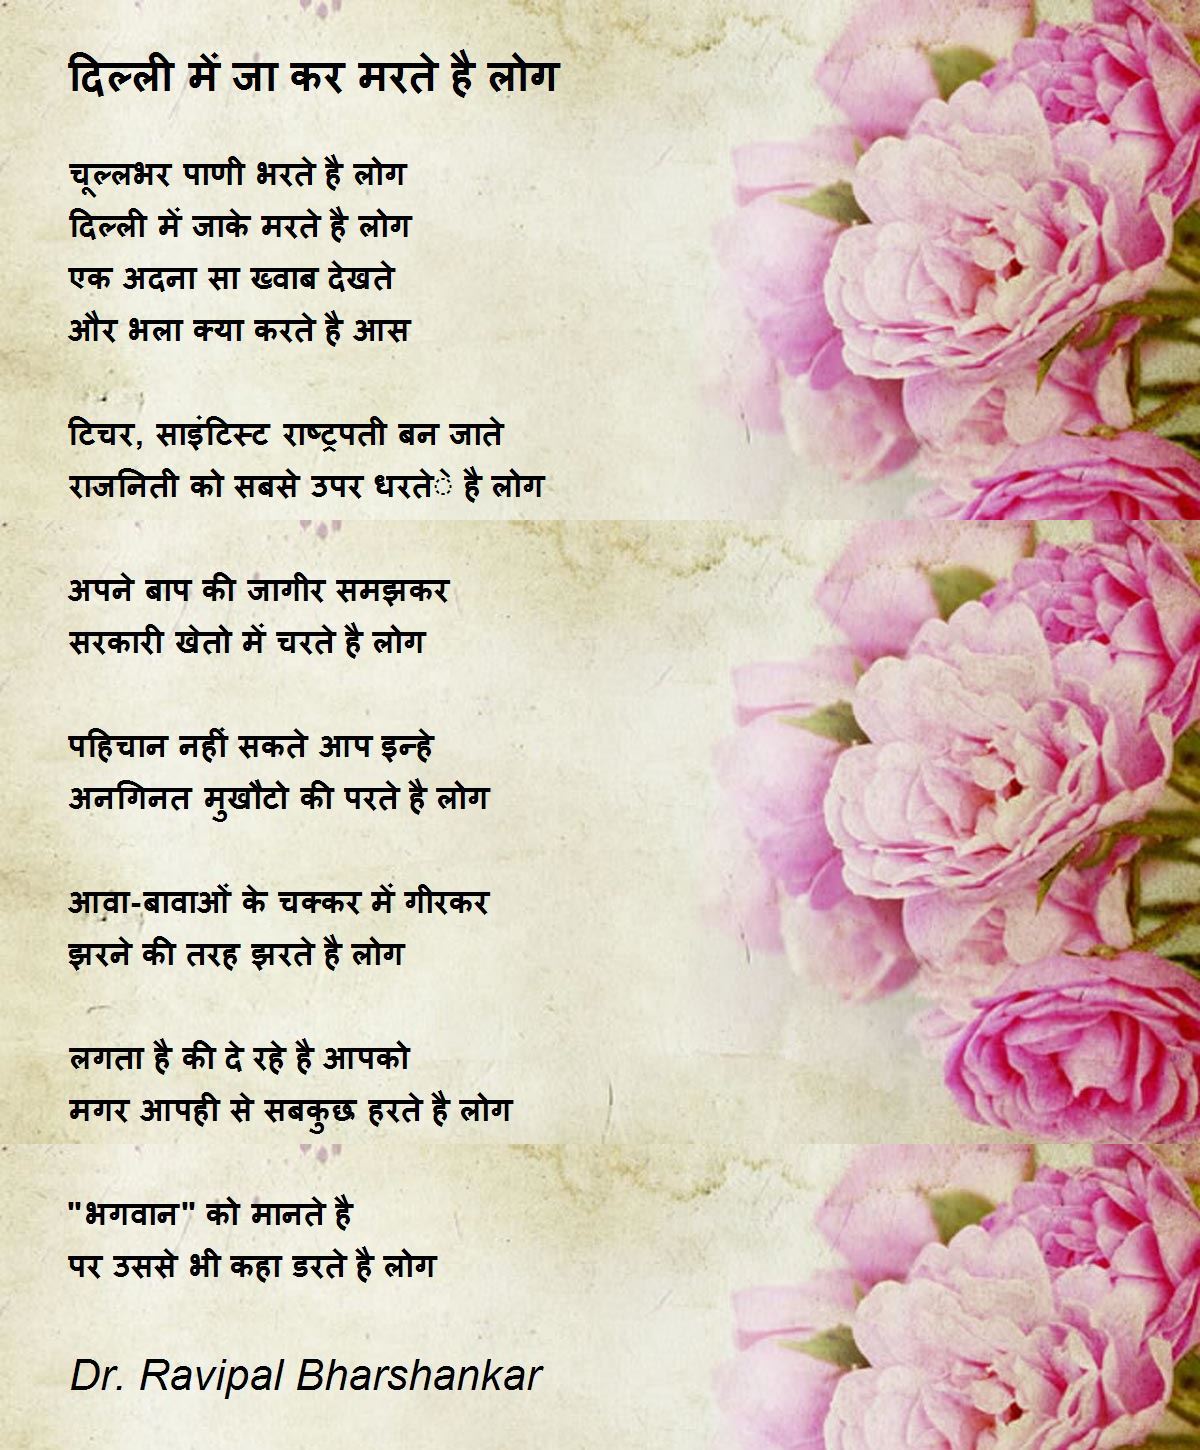 दिल्ली में जा कर मरते है लोग
चूल्लभर पाणी भरते है लोग
दिल्ली में जाके मरते है लोग
एक अदना सा ख्वाब देखते
और भला क्या करते है आस
टिचर, साइंटिस्ट राष्ट्रपती बन जाते
राजनिती को सबसे उपर धरतेे है लोग
अपने बाप की जागीर समझकर
सरकारी खेतो में चरते है लोग
पहिचान नहीं सकते आप इन्हे
अनगिनत मुखौटो की परते है लोग
आवा-बावाओं के चक्कर में गीरकर
झरने की तरह झरते है लोग
लगता है की दे रहे है आपको
मगर आपही से सबकुछ हरते है लोग
"भगवान" को मानते है
पर उससे भी कहा डरते है लोग
Dr. Ravipal Bharshankar